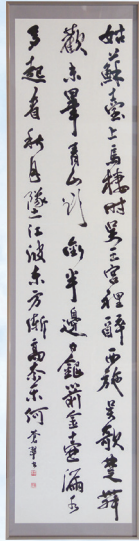 姑蘇臺上烏棲時吳王宮裡醉西施吳歌楚舞
歡未畢青山欲銜半邊日銀箭金壺漏水
多起看秋月墜江波東方漸高奈樂何